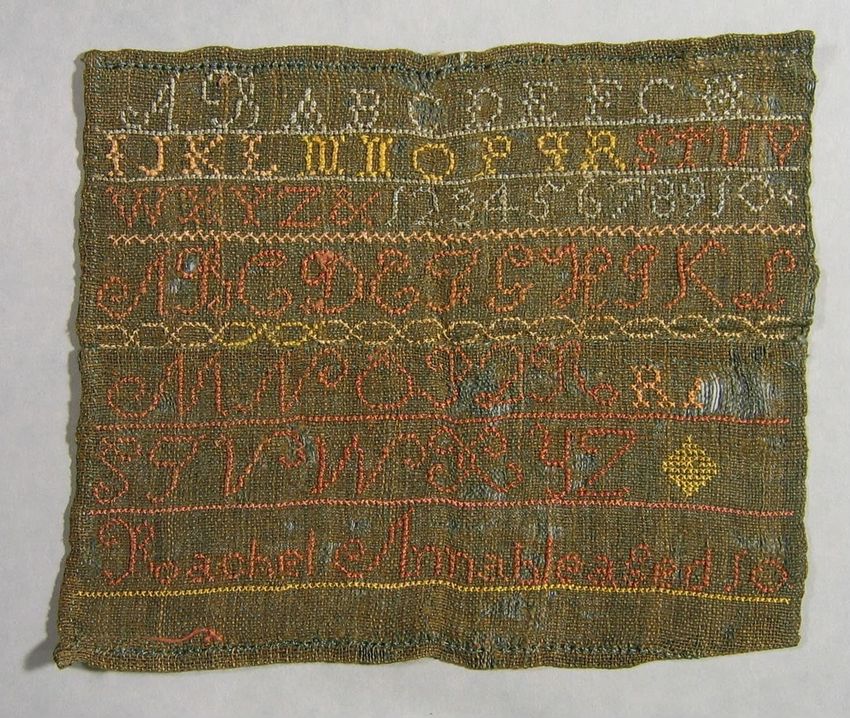 A B A B C D E E F C H
I J K L M N O P q R S T U V
W X Y Z & 1 2 3 4 5 6 7 8 9 1 0
A B C D E F G H I K L
M N O P Q R R
S T V W X Y Z
Reachel Annable aged 10